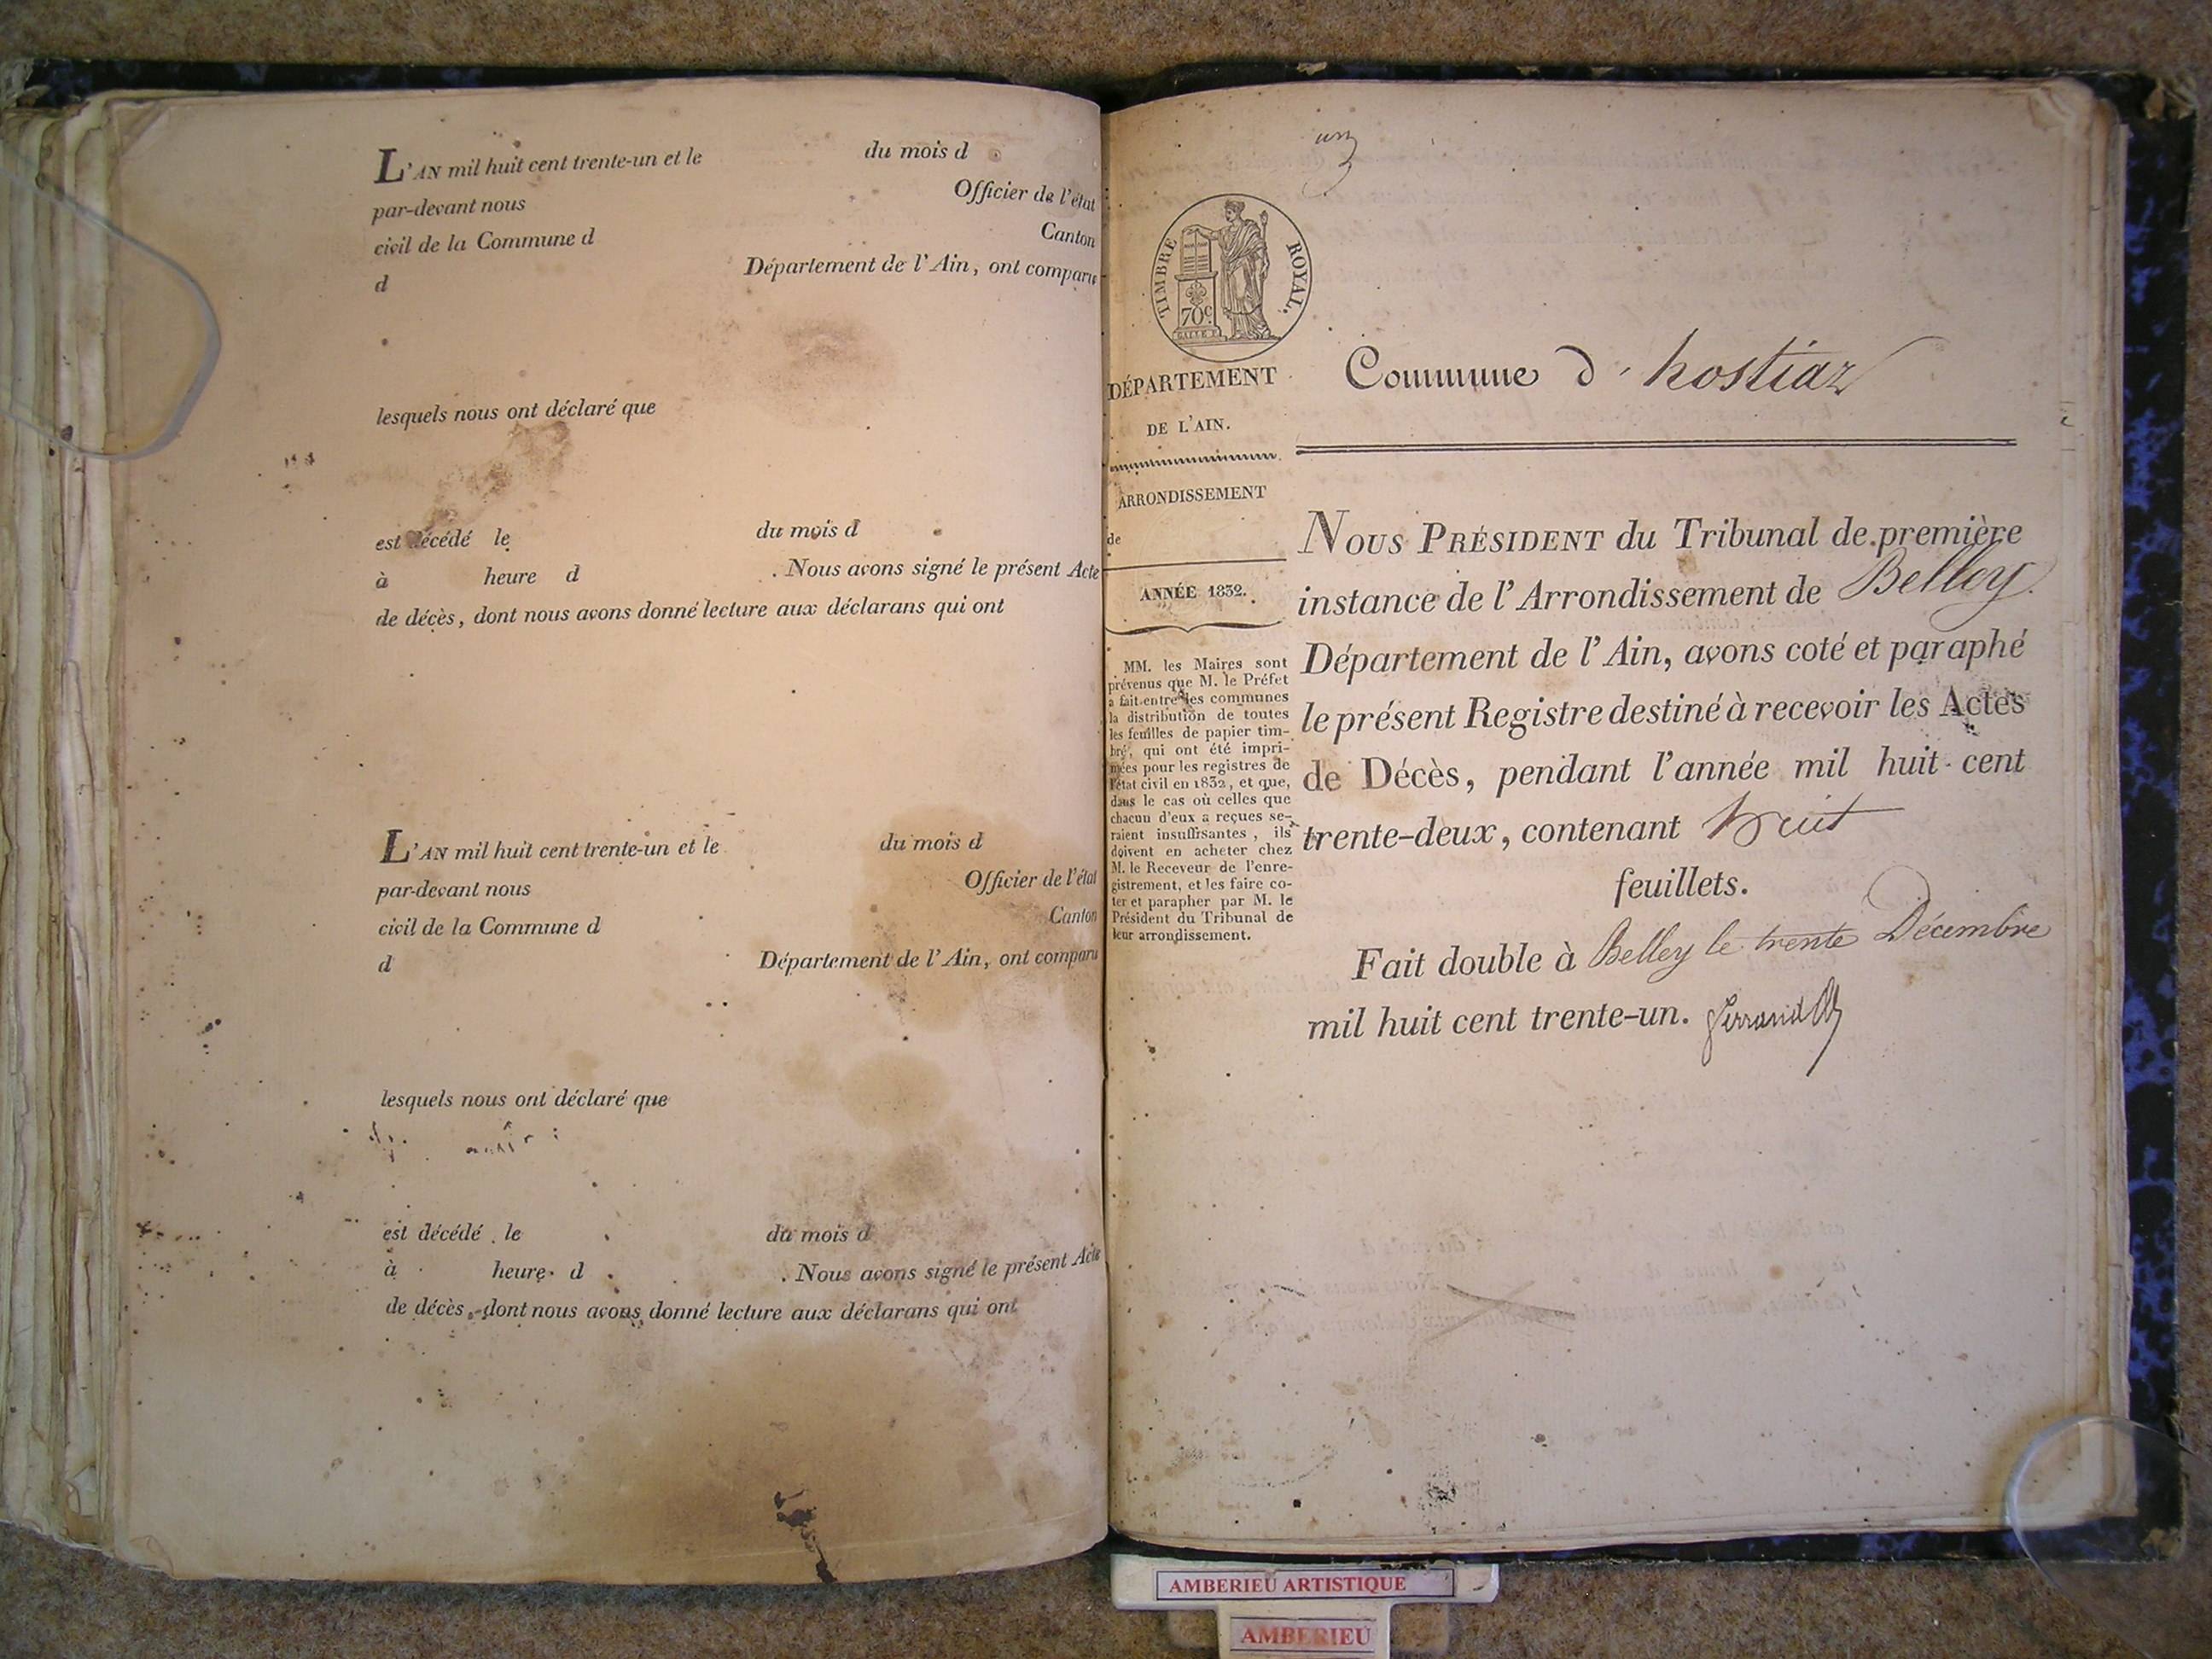 L'AN mil huit cent trente-un et le du mois d
par-devant nous Officier de l'état
civil de la Commune d Canton
d Département de l'Ain, ont comparu
lesquels nous ont déclaré que
est décédé le du mois d
à heure d . Nous avons signé le présent Acte
de décès, dont nous avons donné lecture aux déclarans qui ont
L'AN mil huit cent trente-un et le du mois d
par-devant nous Officier de l'état
civil de la Commune d Canton
d Département de l'Ain, ont comparu
lesquels nous ont déclaré que
est décédé le du mois d
à heure d . Nous avons signé le présent Acte
de décès, dont nous avons donné lecture aux déclarans qui ont
un
TIMBRE ROYAL.
70c.
DÉPARTEMENT
DE L'AIN.
ARRONDISSEMENT
de
ANNÉE 1832.
MM. les Maires sont
prévenus que M. le Préfet
a fait entre les communes
la distribution de toutes
les feuilles de papier tim-
bré, qui ont été impri-
mées pour les registres de
l'état civil en 1832, et que,
dans le cas où celles que
chacun d'eux a reçues se-
raient insuffisantes, ils
doivent en acheter chez
M. le Receveur de l'enre-
gistrement, et les faire co-
ter et parapher par M. le
Président du Tribunal de
leur arrondissement.
Commune d' hostiaz
NOUS PRÉSIDENT du Tribunal de première
instance de l'Arrondissement de Belley
Département de l'Ain, avons coté et paraphé
le présent Registre destiné à recevoir les Actes
de Décès, pendant l'année mil huit-cent
trente-deux, contenant huit
feuillets.
Fait double à Belley le trente Décembre
mil huit cent trente-un.
AMBERIEU ARTISTIQUE
AMBERIEU